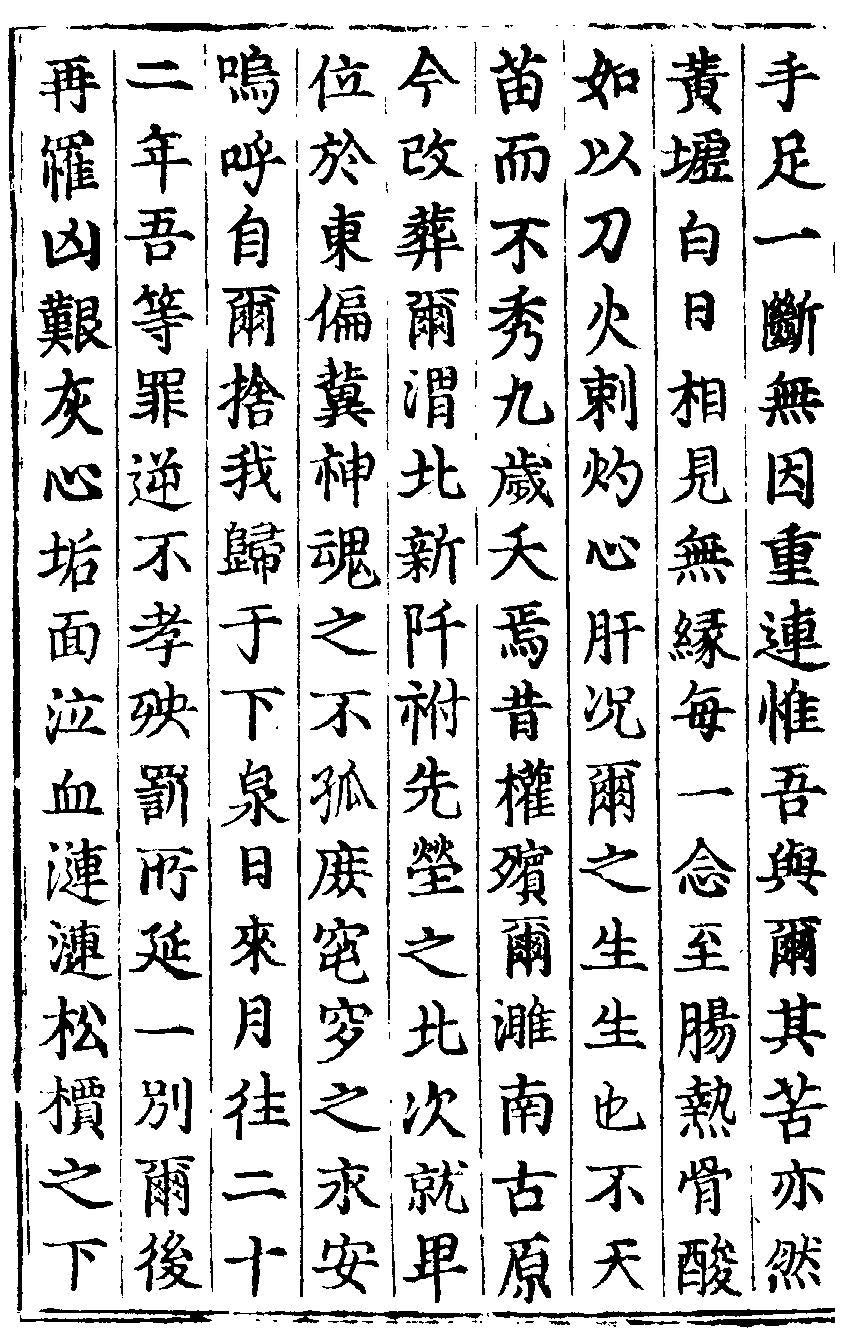 手足一斷無因重連惟吾與爾其苦亦然
黃壚白日相見無緣每一念至腸熱骨酸
如以刀火刺灼心肝况爾之生生也不天
苗而不秀九歲夭焉昔權殯爾濉南古原
今改葬爾渭北新阡祔先塋之北次就卑
位於東偏冀神魂之不孤庻窀穸之永安
嗚呼自爾捨我歸于下泉日來月往二十
二年吾等罪逆不孝殃罰所延一別爾後
再罹凶艱灰心垢面泣血漣漣松檟之下